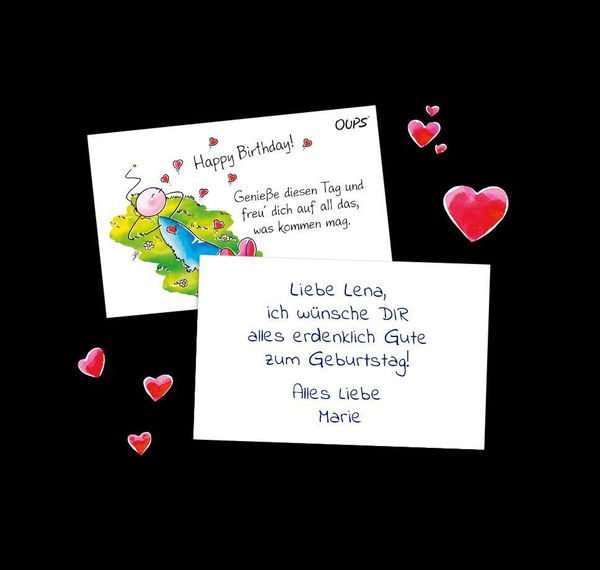 OUPS
Happy Birthday!
Genieße diesen Tag und
freu' dich auf all das,
was kommen mag.
Liebe Lena,
ich wünsche DIR
alles erdenklich Gute
zum Geburtstag!
Alles Liebe
Marie